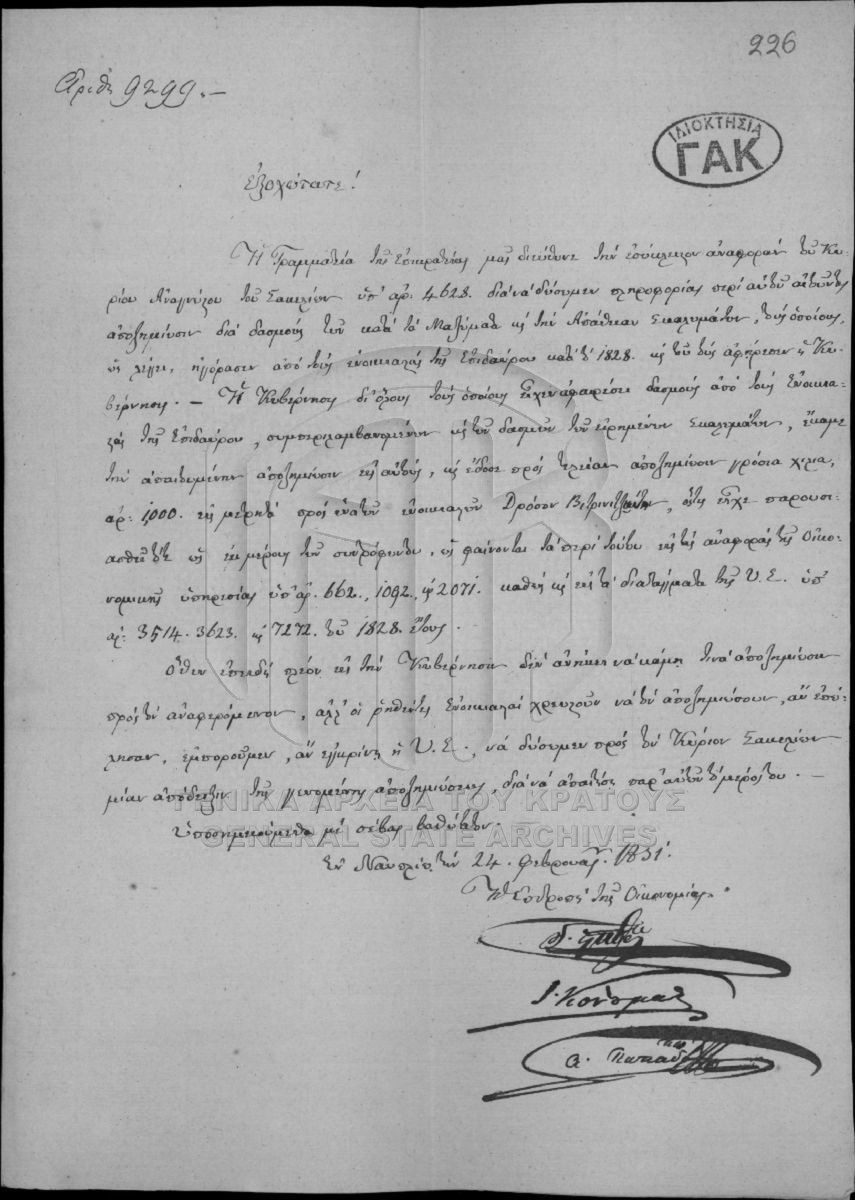 226
Ἀριθ. 9299.-
ΙΔΙΟΚΤΗΣΙΑ
ΓΑΚ
Ἐξοχώτατε!
Ἡ Γραμματεία τῆς Ἐπικρατείας μᾶς διεύθυνε τὴν ἐσώκλειστον ἀναφορὰν τοῦ Κυ-
ρίου Ἀναγνώστου τοῦ ὑπ' ἀρ: 4628. διὰ νὰ δώσωμεν πληροφορίας περὶ αὐτοῦ αἰτοῦντος
ἀποζημίωσιν διὰ δασμοὺς τῶν κατὰ τὰ καὶ τὴν, τοὺς ὁποίους,
ὡς λέγει, ἠγόρασεν ἀπὸ τοὺς ἐνοικιαστὰς τῆς Ἐπιδαύρου κατὰ τὸ 1828. καὶ τοῦ τοὺς ἀφῄρεσεν ἡ Κυ-
βέρνησις. - Ἡ Κυβέρνησις δι' ὅλους τοὺς ὁποίους εἶχεν ἀφαιρέσει δασμοὺς ἀπὸ τοὺς Ἐνοικια-
στὰς τῆς Ἐπιδαύρου, συμπεριλαμβανομένων καὶ τῶν δασμῶν τῶν εἰρημένων, ἔκαμε
τὴν ἀπαιτουμένην ἀποζημίωσιν εἰς αὐτοὺς, καὶ ἔδωσε πρὸς τελείαν ἀποζημίωσιν γρόσια χίλια,
ἀρ: 1,000. εἰς μετρητὰ πρὸς ἕνα τῶν ἐνοικιαστῶν Δρόσον, ὅστις εἶχε παρουσι-
ασθῆ τότε ὡς ἐκ μέρους τῶν συντρόφων του, ὡς φαίνονται τὰ περὶ τούτου εἰς τὰς ἀναφορὰς τῆς Οἰκο-
νομικῆς ὑπηρεσίας ὑπ' ἀρ. 662., 1092., καὶ 2071. καθὼς καὶ εἰς τὰ διατάγματα τῆς Υ. Ε. ὑπ'
ἀρ: 3514. 3623. καὶ 7272. τοῦ 1828. ἔτους.
Ὅθεν ἐπειδὴ πλέον εἰς τὴν Κυβέρνησιν δὲν ἀνήκει νὰ κάμῃ τινὰ ἀποζημίωσιν
πρὸς τὸν ἀναφερόμενον, ἀλλ' οἱ ῥηθέντες Ἐνοικιασταὶ χρεωστοῦν νὰ τὸν ἀποζημιώσουν, ἂν ἐπώ-
λησαν, ἐμποροῦμεν, ἂν ἐγκρίνῃ ἡ Υ. Ε., νὰ δώσωμεν πρὸς τὸν Κύριον
μίαν ἀπόδειξιν τῆς γενομένης ἀποζημιώσεως, διὰ νὰ ἀπαιτήσῃ παρ' αὐτῶν τὸ μέρος του. -
Ὑποσημειούμεθα μὲ σέβας βαθύτατον.
Ἐν Ναυπλίῳ τὴν 24. Φεβρουαρ. 1831.
Ἡ Ἐπιτροπὴ τῆς Οἰκονομίας.
Ι. Κοντουμᾶς
Α. Παπαδ
ΓΕΝΙΚΑ ΑΡΧΕΙΑ ΤΟΥ ΚΡΑΤΟΥΣ
GENERAL STATE ARCHIVES